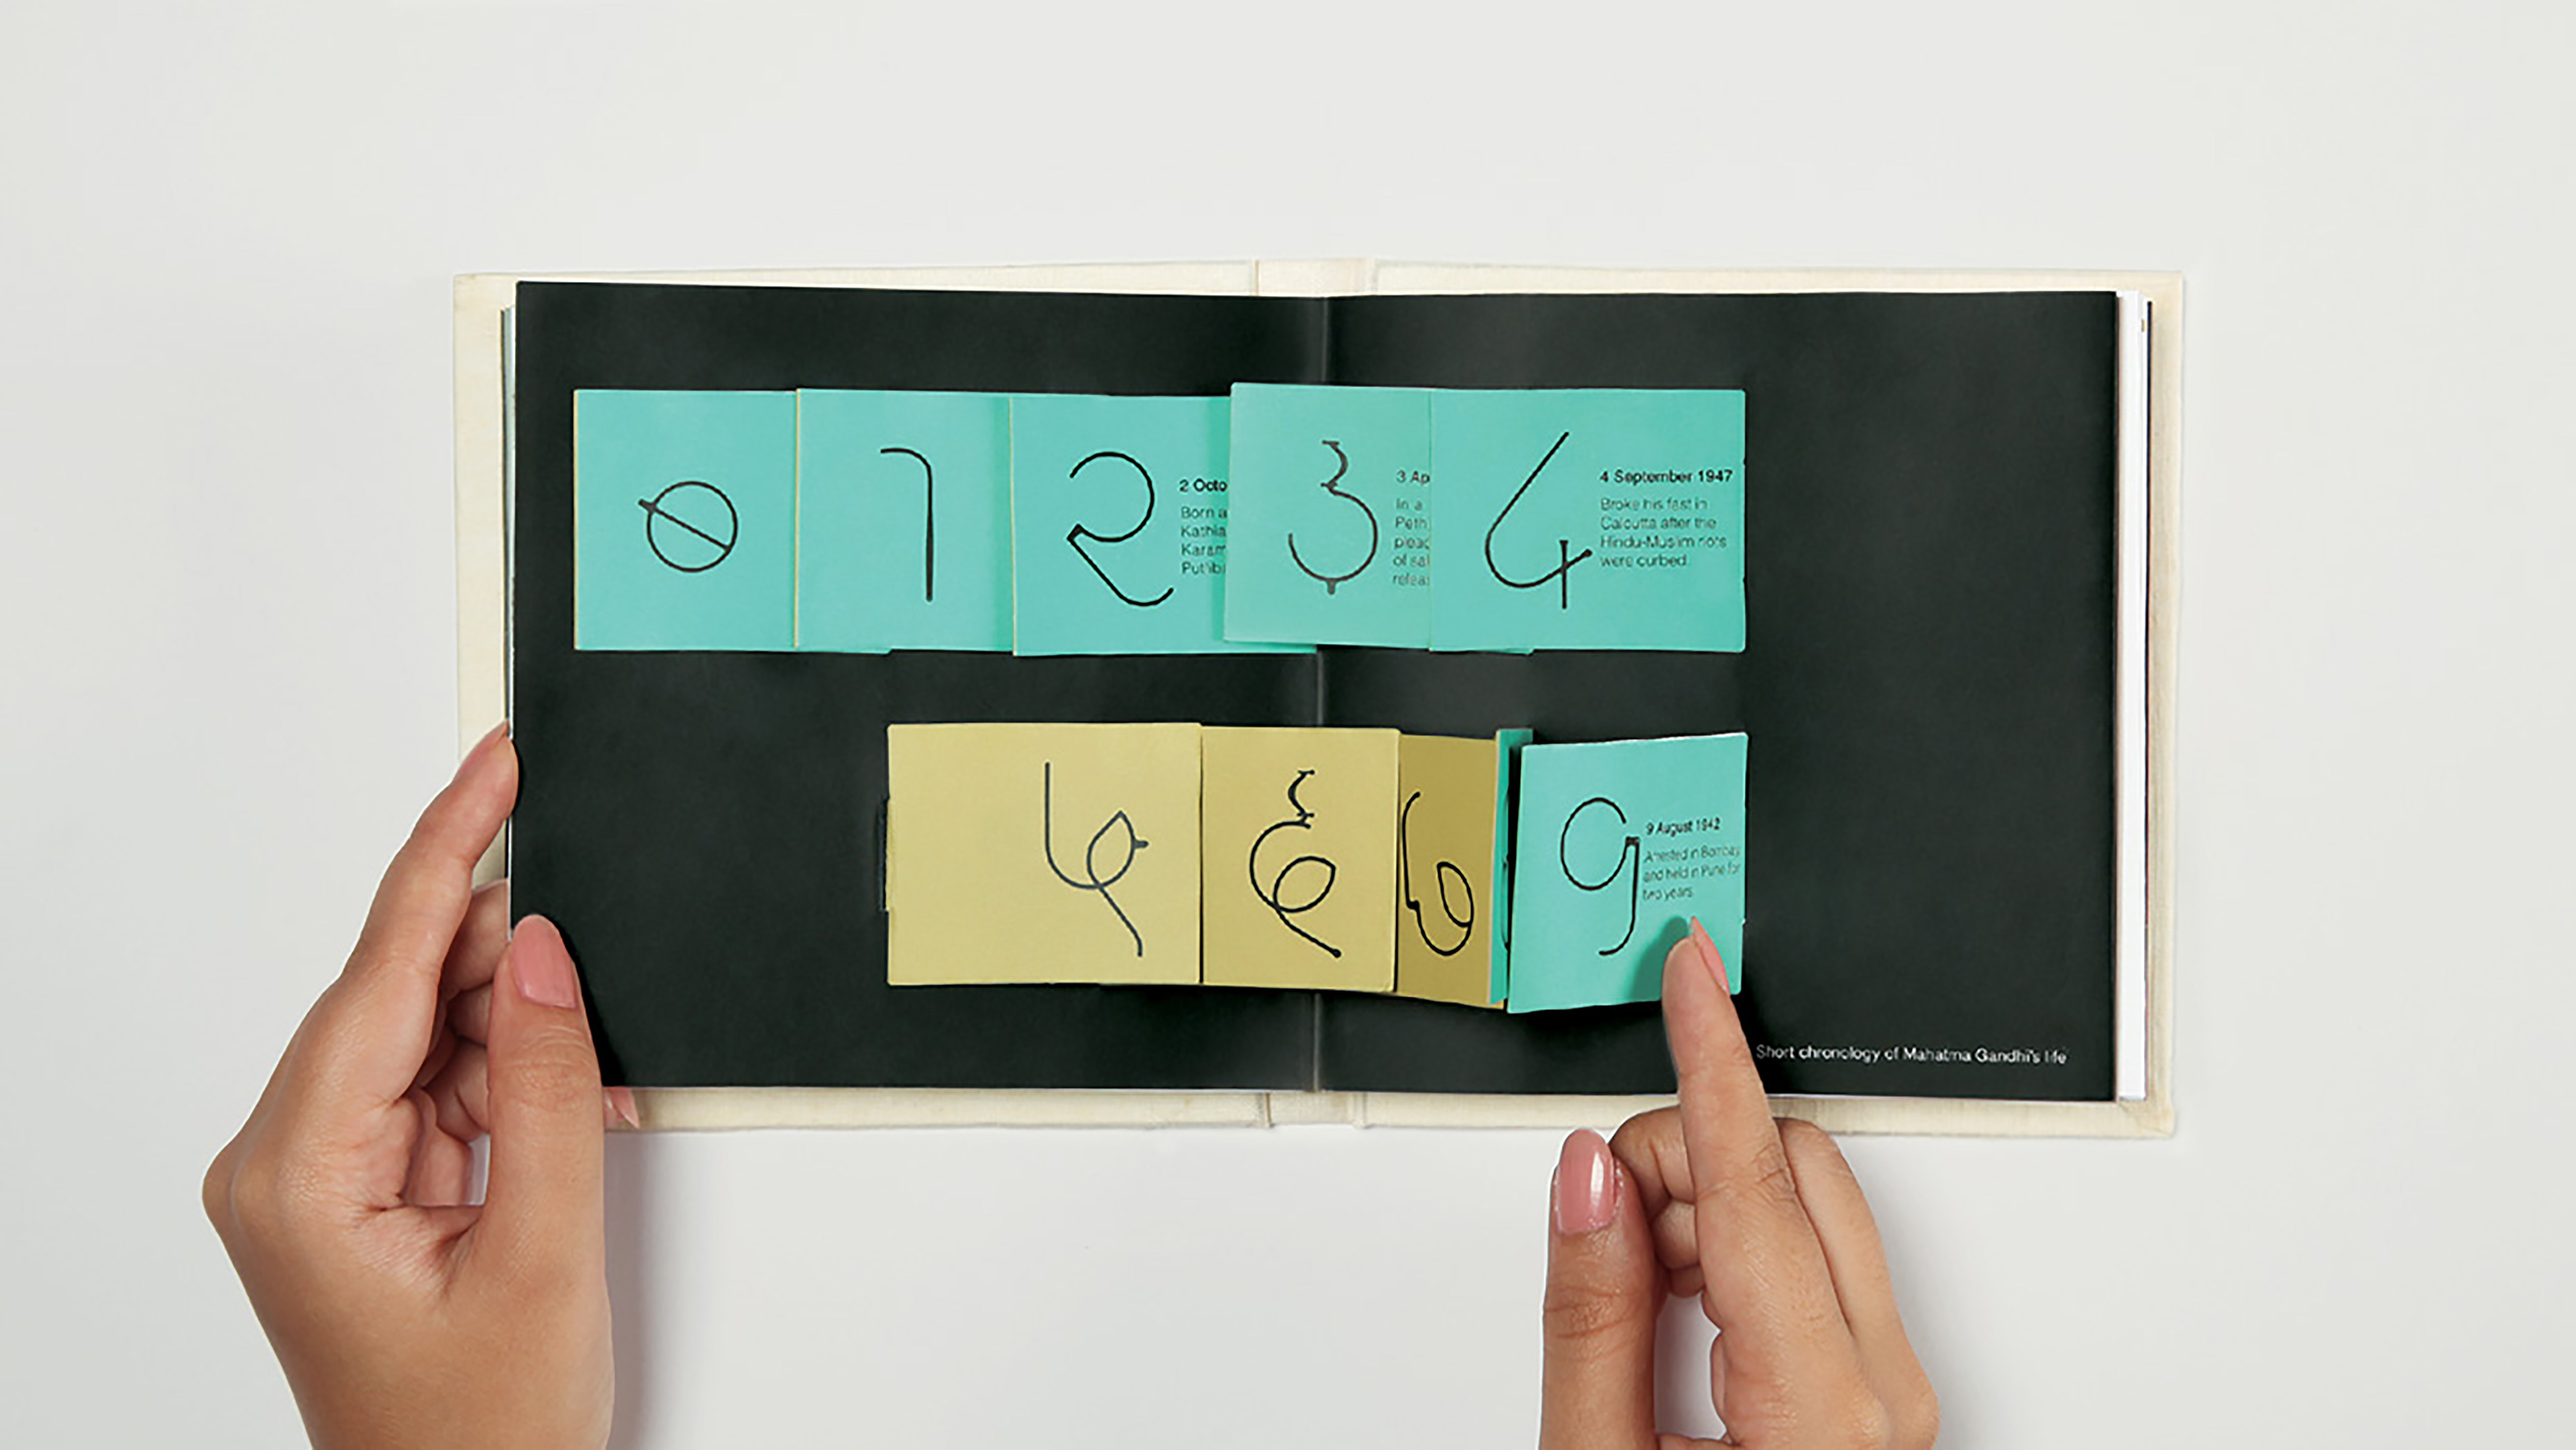 0 1 2 3 4
2 Octo
Born a
Kathia
Karam
Putliba
3 Ap
In a
Peth
plead
of sal
releas
4 September 1947
Broke his fast in
Calcutta after the
Hindu-Muslim riots
were curbed.
५ ६ ७ 9
9 August 1942
Arrested in Bombay
and held in Pune for
two years.
Short chronology of Mahatma Gandhi's life